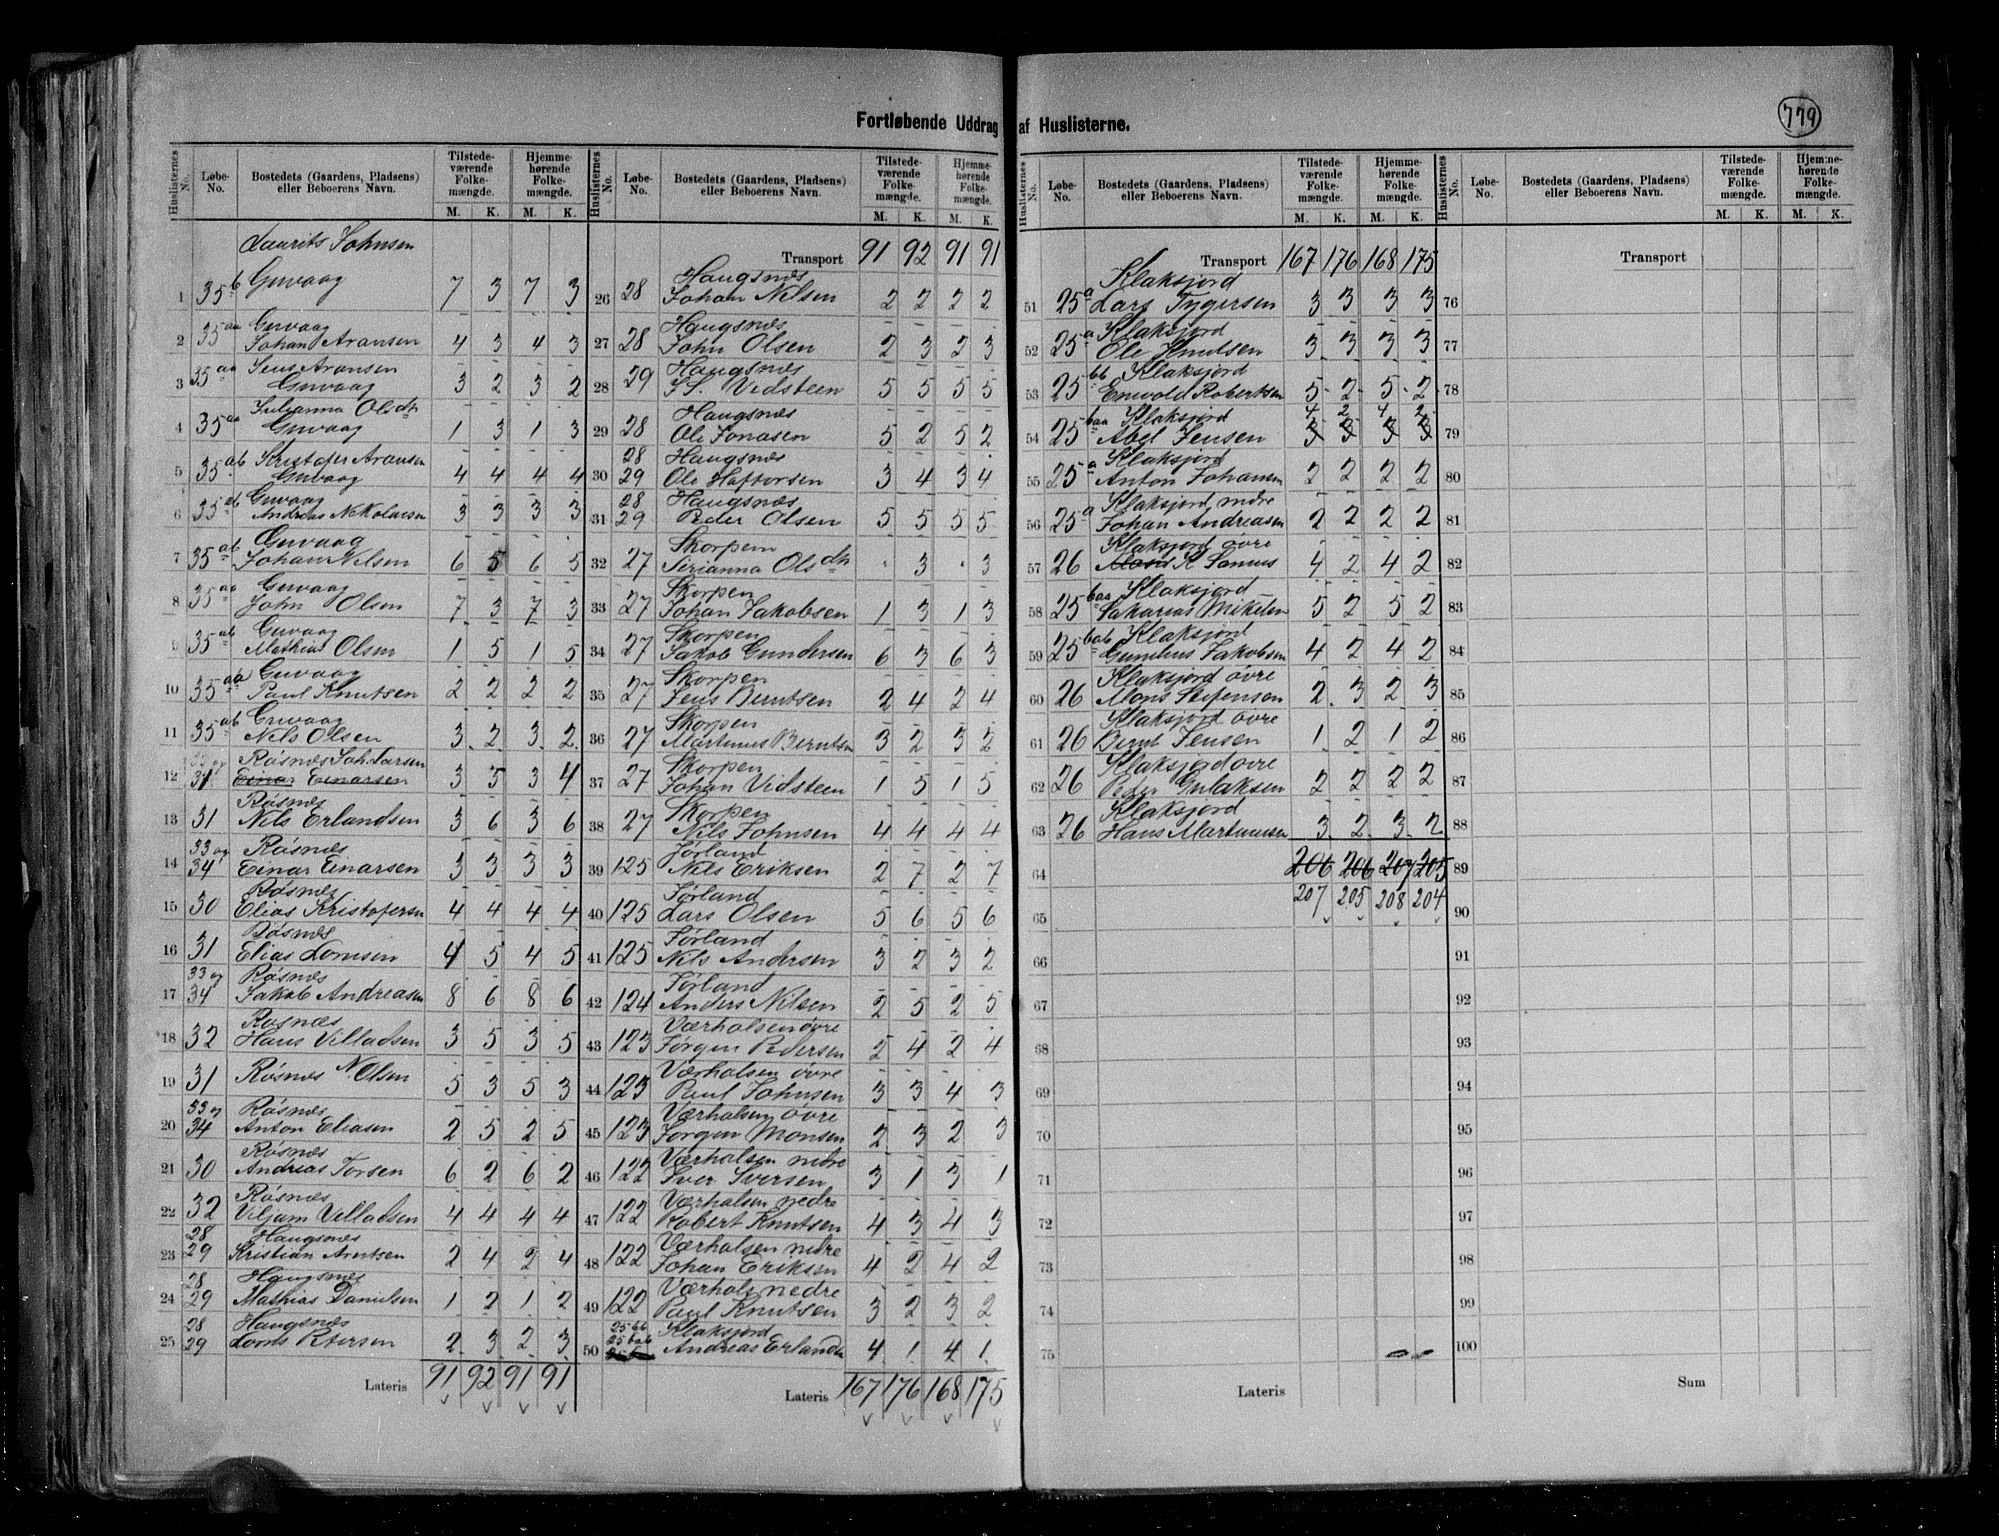 779
Fortløbende Uddrag af Huslisterne.
Huslisternes No. Løbe-No. Bostedets (Gaardens, Pladsens) eller Beboerens Navn. Tilstedeværende Folkemængde. M. K. Hjemmehørende Folkemængde. M. K.
Laurits Johnsen
1 35 b Guvaag 7 3 7 3
2 35 aa Guvaag Johan Aronsen 4 3 4 3
3 35 aa Jens Aronsen Guvaag 3 2 3 2
4 35 aa Julianna Olsdtr Guvaag 1 3 1 3
5 35 ab Kristofer Aronsen Guvaag 4 4 4 4
6 35 ab Guvaag Andreas Nikolaisen 3 3 3 3
7 35 ab Guvaag Johan Nilsen 6 5 6 5
8 35 aa Guvaag John Olsen 7 3 7 3
9 35 ab Guvaag Mathias Olsen 1 5 1 5
10 35 aa Guvaag Paul Knutsen 2 2 2 2
11 35 ab Guvaag Nils Olsen 3 2 3 2
12 33 og 31 Røsnæs Joh. Larsen Einar Einarsen 3 5 3 4
13 31 Røsnæs Nils Erlandsen 3 6 3 6
14 33 og 34 Røsnæs Einar Einarsen 3 3 3 3
15 30 Røsnæs Elias Kristofersen 4 4 4 4
16 31 Røsnæs Elias Lornsen 4 5 4 5
17 33 og 34 Røsnæs Jakob Andreasen 8 6 8 6
18 32 Røsnæs Hans Villadsen 3 5 3 5
19 31 Røsnæs N. Olsen 5 3 5 3
20 33 og 34 Røsnæs Anton Eliasen 2 5 2 5
21 30 Røsnæs Andreas Torsen 6 2 6 2
22 32 Røsnæs Viljam Villadsen 4 4 4 4
23 28 29 Haugsnæs Kristian Arntsen 2 4 2 4
24 28 29 Haugsnæs Mathias Danielsen 1 2 1 2
25 28 29 Haugsnæs Lorns Petersen 2 3 2 3
Lateris 91 92 91 91
Huslisternes No. Løbe-No. Bostedets (Gaardens, Pladsens) eller Beboerens Navn. Tilstedeværende Folkemængde. M. K. Hjemmehørende Folkemængde. M. K.
Transport 91 92 91 91
26 28 Haugsnæs Johan Nilsen 2 2 2 2
27 28 Haugsnæs John Olsen 2 3 2 3
28 29 Haugsnæs Vidsteen 5 5 5 5
29 28 Haugsnæs Ole Jonasen 5 2 5 2
30 28 29 Haugsnæs Ole Haftorsen 3 4 3 4
31 28 29 Haugsnæs Peder Olsen 5 5 5 5
32 27 Skorpen Sirianna Olsdtr · 3 · 3
33 27 Skorpen Johan Jakobsen 1 3 1 3
34 27 Skorpen Jakob Gundersen 6 3 6 3
35 27 Skorpen Jens Berntsen 2 4 2 4
36 27 Skorpen Martinus Berntsen 3 2 3 2
37 27 Skorpen Johan Vidsteen 1 5 1 5
38 27 Skorpen Nils Johnsen 4 4 4 4
39 125 Førland Nils Eriksen 2 7 2 7
40 125 Førland Lars Olsen 5 6 5 6
41 125 Førland Nils Andersen 3 2 3 2
42 124 Førland Anders Nilsen 2 5 2 5
43 123 Værhalsen øvre Jørgen Pedersen 2 4 2 4
44 123 Værhalsen øvre Paul Johnsen 3 3 4 3
45 123 Værhalsen øvre Jørgen Monsen 2 3 2 3
46 122 Værhalsen nedre Iver Iversen 3 1 3 1
47 122 Værhalsen nedre Robert Knutsen 4 3 4 3
48 122 Værhalsen nedre Johan Eriksen 4 2 4 2
49 122 Værhals nedre Paul Knutsen 3 2 3 2
50 25 bb 25 bab Klaksjord Andreas Erlands 4 1 4 1
Lateris 167 176 168 175
Huslisternes No. Løbe-No. Bostedets (Gaardens, Pladsens) eller Beboerens Navn. Tilstedeværende Folkemængde. M. K. Hjemmehørende Folkemængde. M. K.
Transport 167 176 168 175
51 25 a Klaksjord Lars Tygersen 3 3 3 3
52 25 a Klaksjord Ole Knutsen 3 3 3 3
53 25 bb Klaksjord Enevold Robertsen 5 2 5 2
4 2 4 2
54 25 baa Klaksjord Abel Jensen 3 3 3 3
55 25 a Klaksjord Anton Johansen 2 2 2 2
56 25 a Klaksjord ndre Johan Andreasen 2 2 2 2
57 26 Klaksjord øvre K Samus 4 2 4 2
58 25 baa Klaksjord Sakarias Mikelsen 5 2 5 2
59 25 bab Klaksjord Gunelius Jakobsen 4 2 4 2
60 26 Klaksjord øvre Mons Stefensen 2 3 2 3
61 26 Klaksjord øvre Bernt Jensen 1 2 1 2
62 26 Klaksjord øvre Peder Gulaksen 2 2 2 2
63 26 Klaksjord Hans Martinusen 3 2 3 2
64 206 206 207 205
207 205 208 204
65
66
67
68
69
70
71
72
73
74
75
Lateris
Huslisternes No. Løbe-No. Bostedets (Gaardens, Pladsens) eller Beboerens Navn. Tilstedeværende Folkemængde. M. K. Hjemmehørende Folkemængde. M. K.
Transport
76
77
78
79
80
81
82
83
84
85
86
87
88
89
90
91
92
93
94
95
96
97
98
99
100
Sum